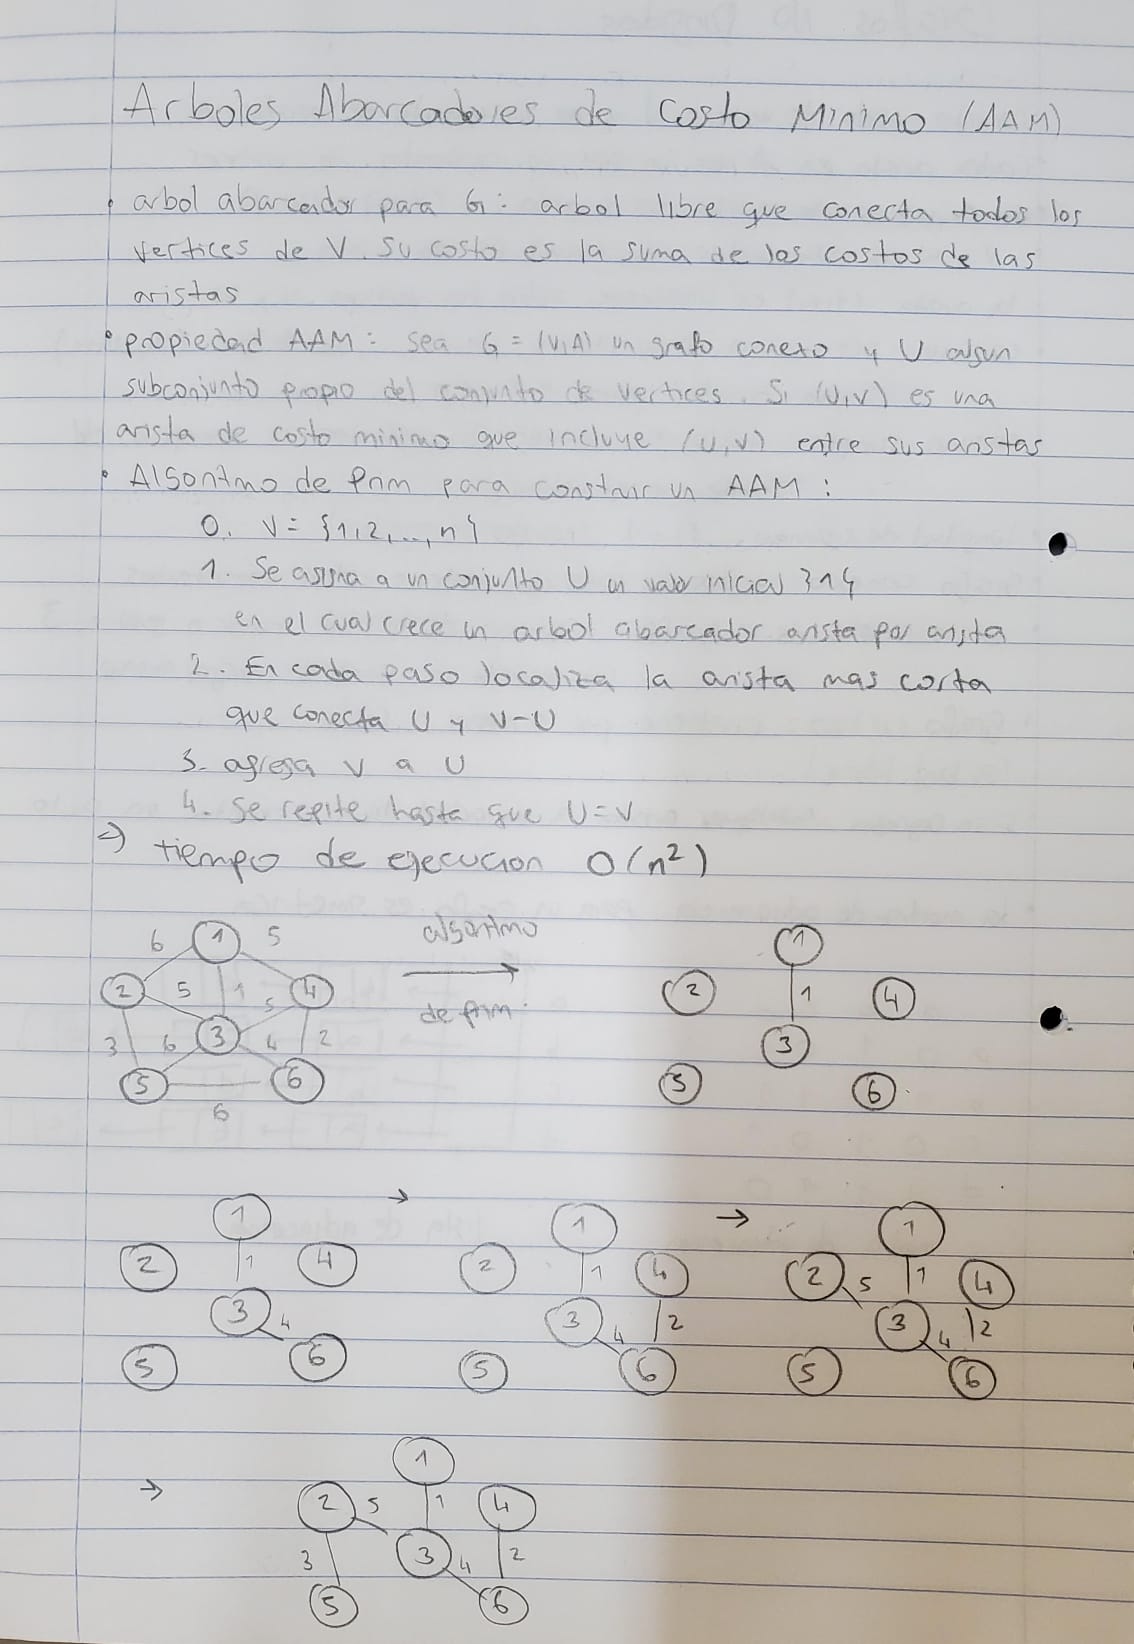 Arboles Abarcadores de Costo Minimo (AAM)
• arbol abarcador para G: arbol libre que conecta todos los
vertices de V. Su costo es la suma de los costos de las
aristas
• propiedad AAM: sea G = (V,A) un grafo conexo y U algun
subconjunto propio del conjunto de vertices. Si (u,v) es una
arista de costo minimo que incluye (u,v) entre sus aristas
• Algoritmo de Prim para construir un AAM:
0. V = {1,2,...,n}
1. Se asigna a un conjunto U un valor inicial {1}
en el cual crece un arbol abarcador arista por arista
2. En cada paso localiza la arista mas corta
que conecta U y V-U
3. agrega v a U
4. Se repite hasta que U=V
=> tiempo de ejecucion O(n²)
algoritmo
de prim
6 1 5
2 5 1 5 4
3 6 3 4 2
5 6
6
1
2 1 4
3
5 6
→ →
1 1 1
2 1 4 2 1 4 2 5 1 4
3 4 3 4 2 3 4 2
5 6 5 6 5 6
→
1
2 5 1 4
3 3 4 2
5 6